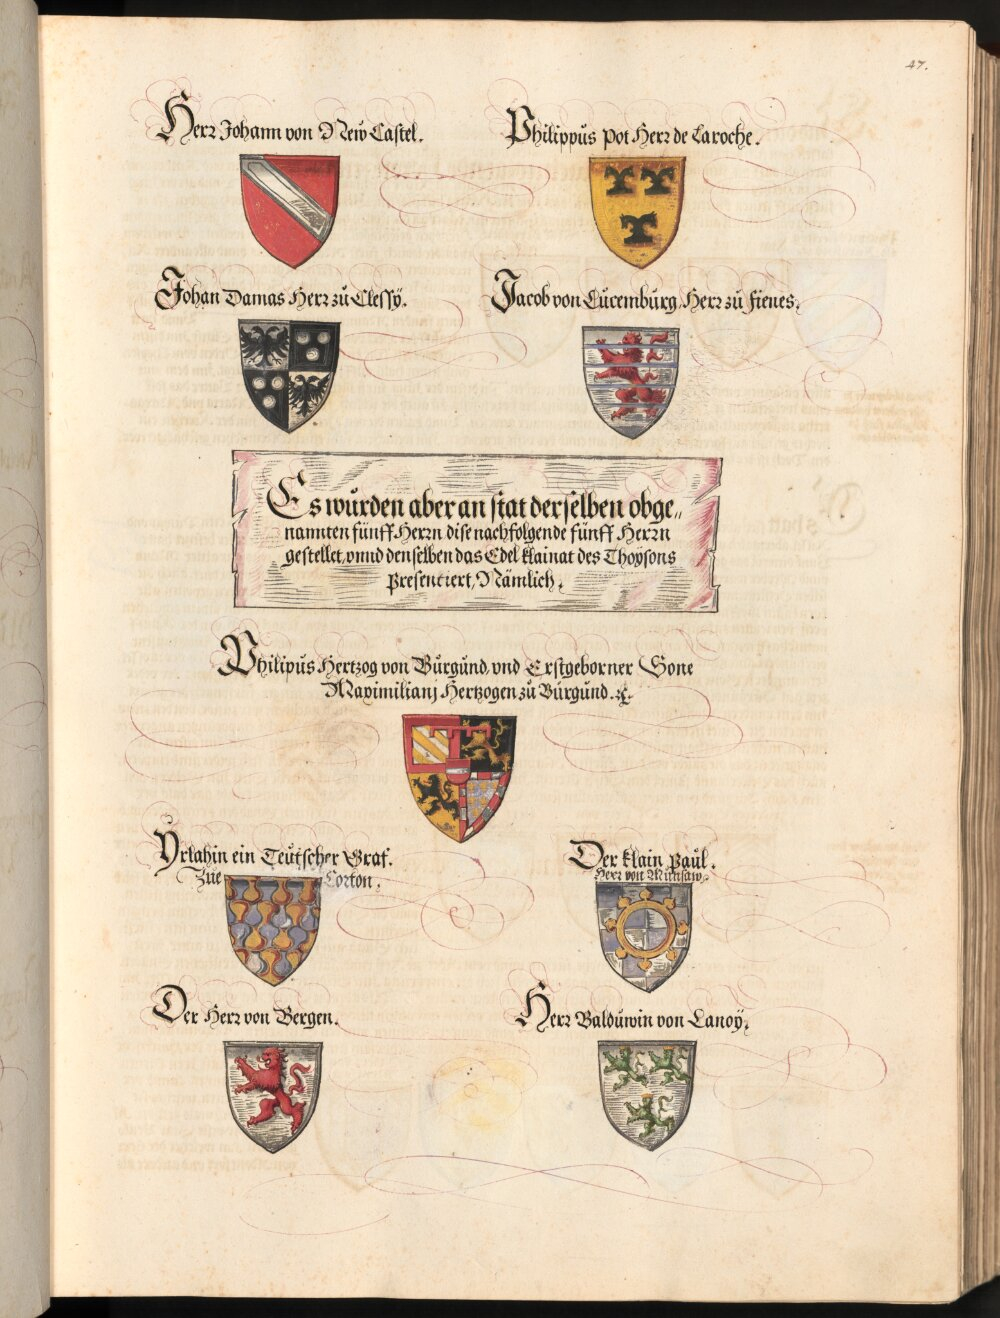 47.
Herr Johann von New Castel.
Philippus Pot Herr de Laroche.
Johan Damas Herr zu Clessÿ.
Jacob von Lucemburg, Herr zu fienes.
Es wurden aber an stat derselben obge„
nannten fünff Herrn dise nachfolgende fünff Herrn
gestellet, vnnd denselben das Edel klainat des Thoÿsons
presentiert, Nämlich.
Philipus Hertzog von Burgund, vnd Erstgeborner Sone
Maximilianj Hertzogen zu Burgund. ꝛc.
Yrlahin ein Teutscher Graf.
Zue Corton.
Der klain Paul.
Herr von Munsaw.
Der Herr von Bergen.
Herr Balduwin von Lanoÿ.